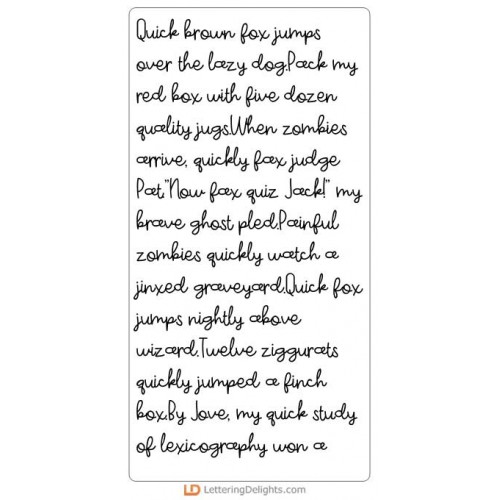 Quick brown fox jumps
over the lazy dog.Pack my
red box with five dozen
quality jugs.When zombies
arrive, quickly fax judge
Pat."Now fax quiz Jack!" my
brave ghost pled.Painful
zombies quickly watch a
jinxed graveyard.Quick fox
jumps nightly above
wizard.Twelve ziggurats
quickly jumped a finch
box.By Jove, my quick study
of lexicography won a
LD LetteringDelights.com